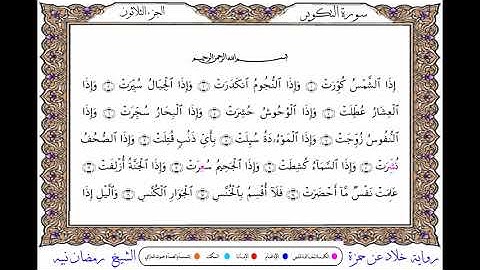 سورة التكوير
الجزء الثلاثون
بسم الله الرحمن الرحيم
إِذَا الشَّمْسُ كُوِّرَتْ ۝ وَإِذَا النُّجُومُ انكَدَرَتْ ۝ وَإِذَا الْجِبَالُ سُيِّرَتْ ۝ وَإِذَا
الْعِشَارُ عُطِّلَتْ ۝ وَإِذَا الْوُحُوشُ حُشِرَتْ ۝ وَإِذَا الْبِحَارُ سُجِّرَتْ ۝ وَإِذَا
النُّفُوسُ زُوِّجَتْ ۝ وَإِذَا الْمَوْءُدَةُ سُئِلَتْ ۝ بِأَيِّ ذَنۢبٍ قُتِلَتْ ۝ وَإِذَا الصُّحُفُ
نُشِّرَتْ ۝ وَإِذَا السَّمَآءُ كُشِطَتْ ۝ وَإِذَا الْجَحِيمُ سُعِرَتْ ۝ وَإِذَا الْجَنَّةُ أُزْلِفَتْ ۝
عَلِمَتْ نَفْسٌ مَّا أَحْضَرَتْ ۝ فَلَا أُقْسِمُ بِالْخُنَّسِ ۝ الْجَوَارِ الْكُنَّسِ ۝ وَالَّيْلِ إِذَا
رواية خلاد عن حمزة
الشيخ رمضان نبيه